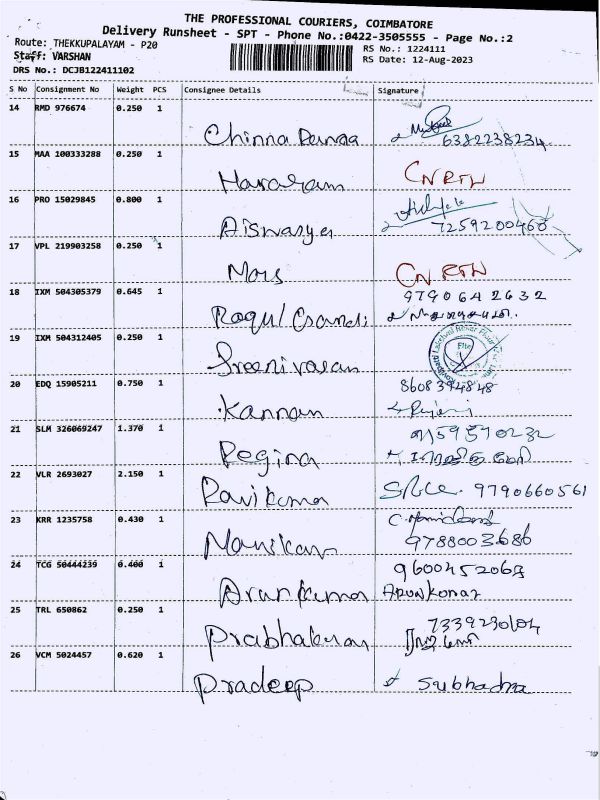 THE PROFESSIONAL COURIERS, COIMBATORE
Delivery Runsheet - SPT - Phone No.:0422-3505555 - Page No.:2
Route: THEKKUPALAYAM - P20 RS No.: 1224111
Staff: VARSHAN RS Date: 12-Aug-2023
DRS No.: DCJB122411102
S No Consignment No Weight PCS Consignee Details Signature
14 RMD 976674 0.250 1
Chinna 6382238234
15 MAA 100333288 0.250 1
CNRTN
16 PRO 15029845 0.800 1
Aiswarya 7259200460
17 VPL 219903258 0.250 1
CNRTN
18 IXM 504305379 0.645 1 9790642632
19 IXM 504312405 0.250 1
Sreenivasan
20 EDQ 15905211 0.750 1 8608394848
Kannan
21 SLM 326069247 1.370 1 9159570232
Regina
22 VLR 2693027 2.150 1
Ravikuma 9790660561
23 KRR 1235758 0.430 1
Manikan 9788003686
24 TCG 50444239 0.400 1
Arunkuma Arunkumar
25 TRL 650862 0.250 1
Prabhakaran
26 VCM 5024457 0.620 1
Pradeep Subhadra